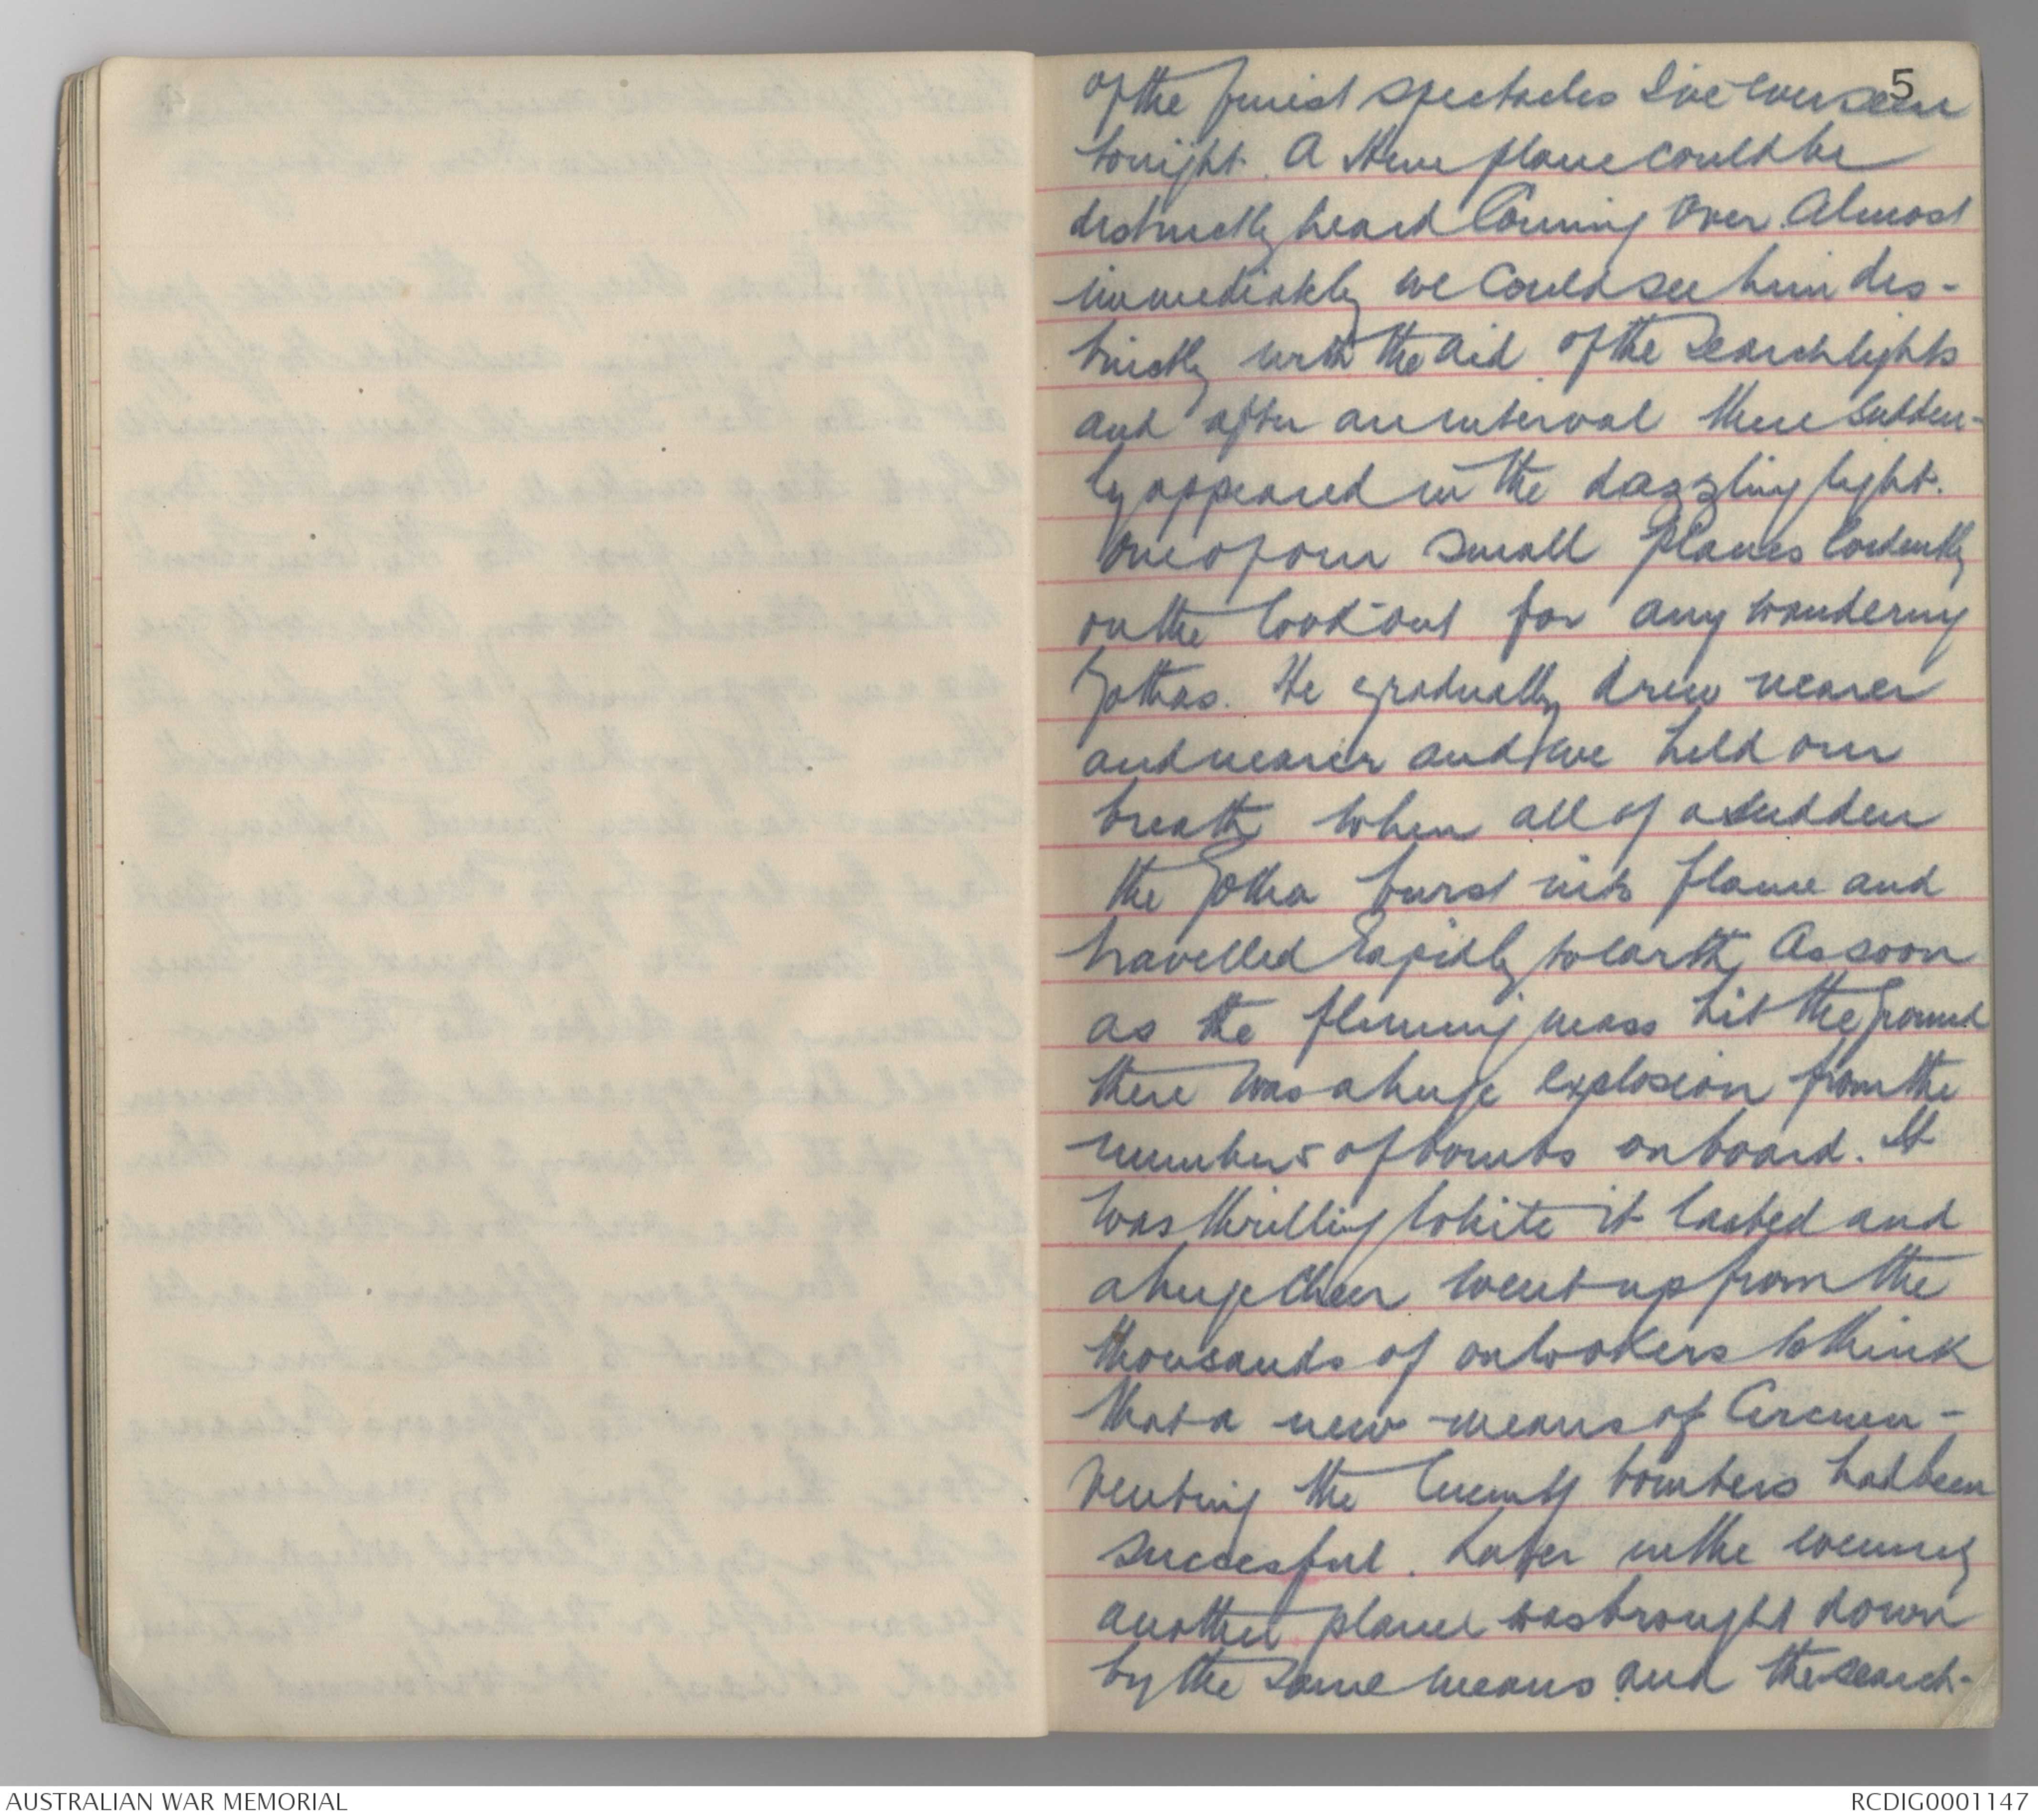 5
of the finest spectacles I've ever seen
tonight. A Hun plane could be
distinctly heard Coming over. Almost
immediately we Could see him dis-
tinctly with the aid of the Searchlights
and after an interval there sudden-
ly appeared in the dazzling light.
One of our small Planes Evidently
on the look out for any wandering
Gothas. He gradually drew nearer
and nearer and we held our
breath when all of a sudden
the Gotha burst into flame and
travelled Rapidly to earth As soon
as the flaming mass hit the ground
there was a huge explosion from the
numbers of bombs on board. It
was thrilling while it lasted and
a huge Cheer went up from the
thousands of onlookers to think
that a new means of Circum-
venting the Enemy bombers had been
succesful. Later in the evening
another plane was brought down
by the same means and the search-
AUSTRALIAN WAR MEMORIAL
RCDIG0001147